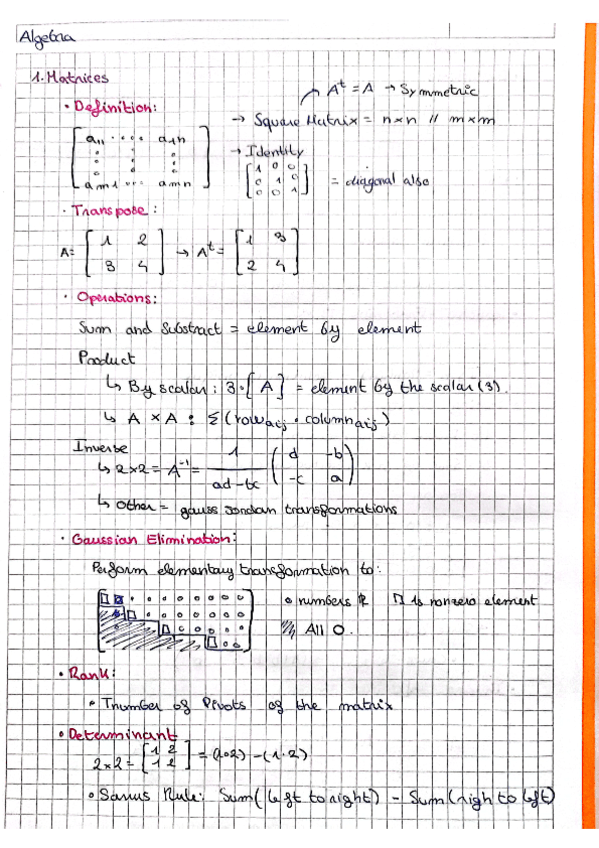 Algebra
1. Matrices
A^t = A → Symmetric
• Definition:
→ Square Matrix = n×n // m×m
[ a11 .... a1n
am1 ... amn ]
→ Identity
[ 1 0 0
0 1 0
0 0 1 ] = diagonal also
• Transpose:
A = [ 1 2
3 4 ] → A^t = [ 1 3
2 4 ]
• Operations:
Sum and Substract = element by element
Product
↳ By scalar: 3·[A] = element by the scalar (3).
↳ A × A : Σ(row aij · column aij)
Inverse
↳ 2×2 = A^-1 = 1 / ad-bc ( d -b
-c a )
↳ Other = gauss Jordan transformations
• Gaussian Elimination:
Perform elementary transformation to:
o numbers R □ is nonzero element
All 0.
• Rank:
• Tnumber of Pivots of the matrix
• Determinant
2×2 = [ 1 2
1 2 ] = (1·2) - (1·2)
• Sarrus Rule: Sum(left to right) - Sum(righ to left)